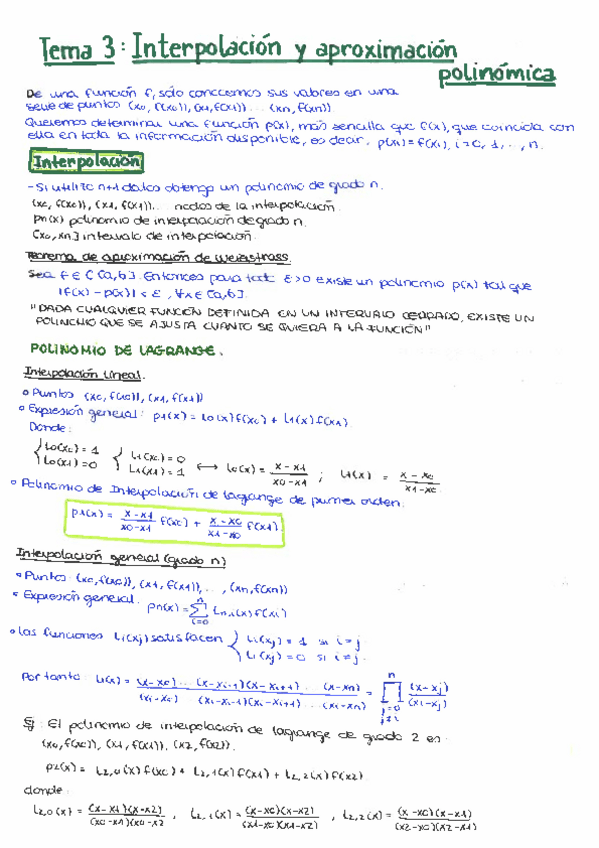 Tema 3: Interpolación y aproximación
polinómica
De una función f, sólo conocemos sus valores en una
serie de puntos (x0, f(x0)), (x1, f(x1)) ... (xn, f(xn))
Queremos determinar una función p(x), más sencilla que f(x), que coincida con
ella en toda la información disponible, es decir, p(xi) = f(xi), i=0, 1, ..., n.
Interpolación
- Si utilizo n+1 datos obtengo un polinomio de grado n.
(x0, f(x0)), (x1, f(x1)) ... nodos de la interpolación.
Pn(x) polinomio de interpolación de grado n.
[x0, xn] intervalo de interpolación.
Teorema de aproximación de Weierstrass.
Sea f ∈ C [a,b]. Entonces para todo ε>0 existe un polinomio p(x) tal que
|f(x) - p(x)| < ε, ∀x ∈ [a,b].
"DADA CUALQUIER FUNCIÓN DEFINIDA EN UN INTERVALO CERRADO, EXISTE UN
POLINOMIO QUE SE AJUSTA CUANTO SE QUIERA A LA FUNCIÓN"
POLINOMIO DE LAGRANGE.
Interpolación Lineal.
• Puntos (x0, f(x0)), (x1, f(x1))
• Expresión general: p1(x) = L0(x)f(x0) + L1(x)f(x1)
Donde:
{ L0(x0) = 1 { L1(x0) = 0
{ L0(x1) = 0 { L1(x1) = 1 ⟷ L0(x) = (x-x1)/(x0-x1) ; L1(x) = (x-x0)/(x1-x0)
• Polinomio de Interpolación de Lagrange de primer orden:
P1(x) = (x-x1)/(x0-x1) f(x0) + (x-x0)/(x1-x0) f(x1)
Interpolación general (grado n)
• Puntos: (x0, f(x0)), (x1, f(x1)), ..., (xn, f(xn))
• Expresión general: Pn(x) = Σ i=0 n Ln,i(x) f(xi)
• Las funciones Li(xj) satisfacen { Li(xj) = 1 si i=j
{ Li(xj) = 0 si i≠j.
Por tanto: Li(x) = (x-x0) ... (x-xi-1)(x-xi+1) ... (x-xn) / (xi-x0) ... (xi-xi-1)(xi-xi+1) ... (xi-xn) = ∏ j=0 j≠i n (x-xj)/(xi-xj)
Ej: El polinomio de interpolación de Lagrange de grado 2 es:
(x0, f(x0)), (x1, f(x1)), (x2, f(x2)).
P2(x) = L2,0(x) f(x0) + L2,1(x) f(x1) + L2,2(x) f(x2)
donde:
L2,0(x) = (x-x1)(x-x2)/(x0-x1)(x0-x2 , L2,1(x) = (x-x0)(x-x2)/(x1-x0)(x1-x2) , L2,2(x) = (x-x0)(x-x1)/(x2-x0)(x2-x1)